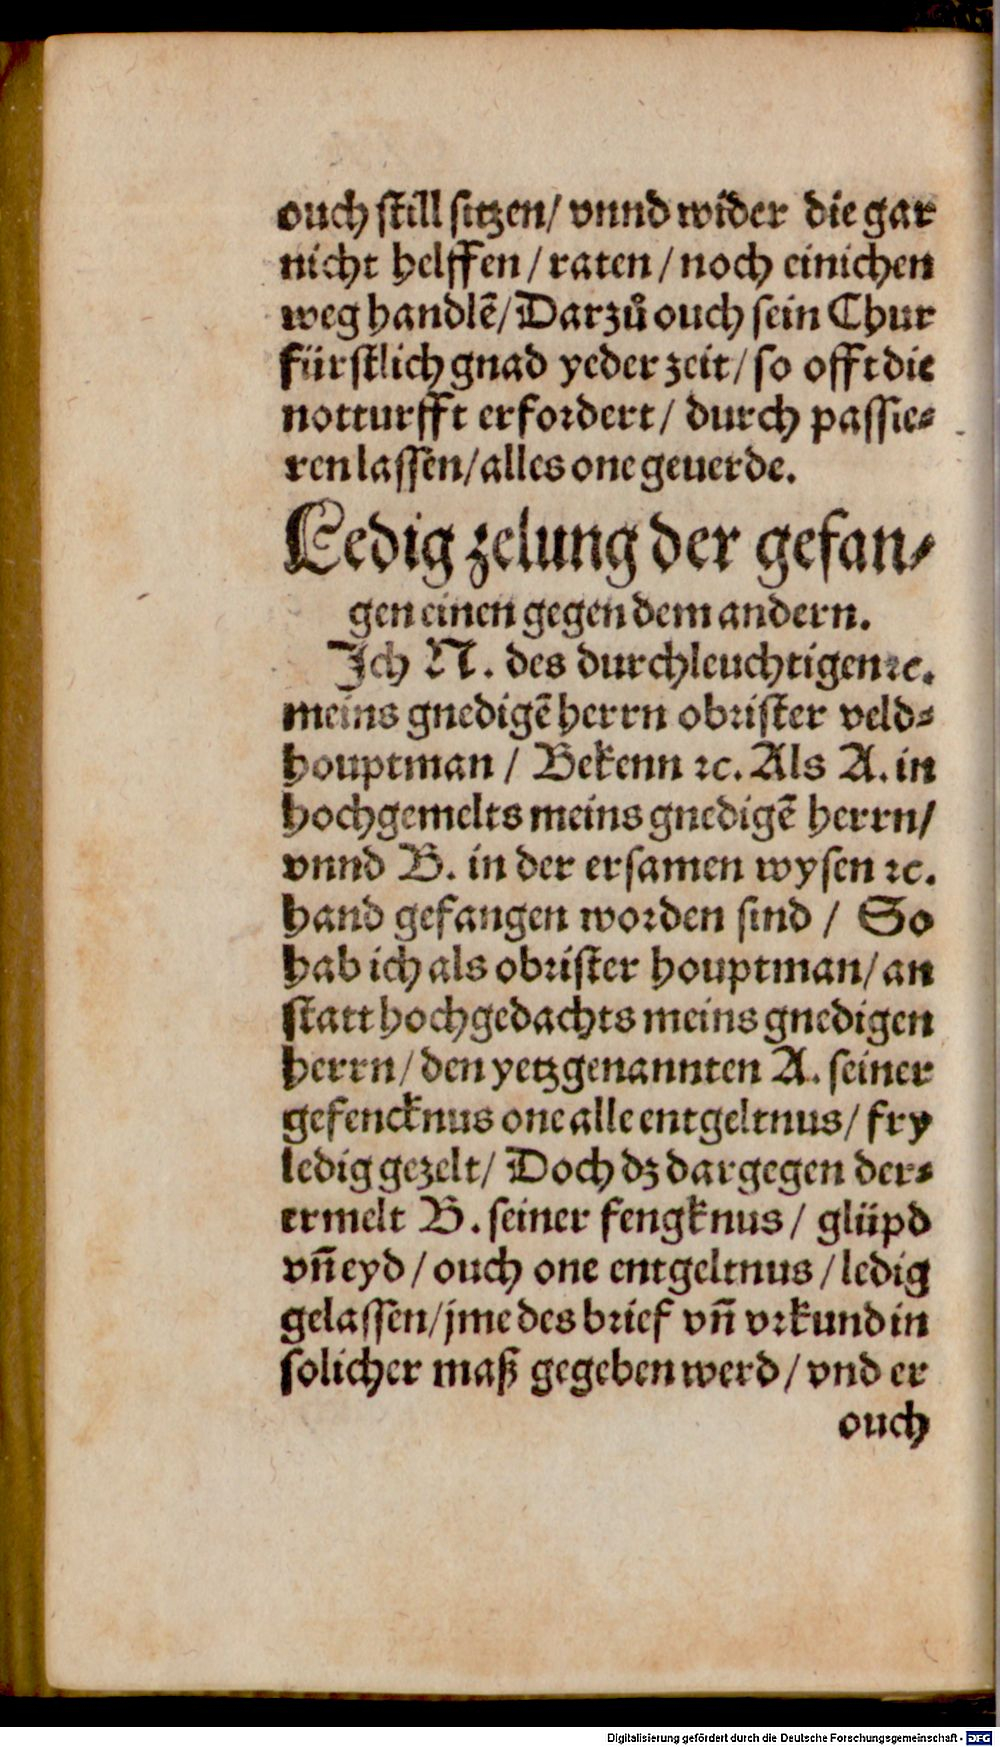 ouch still sitzen/ vnnd wider die gar
nicht helffen / raten / noch einichen
weg handlẽ/ Darzuͦ ouch sein Chur
fürstlich gnad yeder zeit/ so offt die
notturfft erfordert/ durch passie⸗
ren lassen/ alles one geuerde.
Ledig zelung der gefan⸗
gen einen gegen dem andern.
Ich N. des durchleuchtigen ꝛc.
meins gnedigẽ herrn obrister veld⸗
houptman / Bekenn ꝛc. Als A. in
hochgemelts meins gnedigẽ herrn/
vnnd B. in der ersamen wysen ꝛc.
hand gefangen worden sind / So
hab ich als obrister houptman/ an
statt hochgedachts meins gnedigen
herrn/ den yetzgenannten A. seiner
gefencknus one alle entgeltnus/ fry
ledig gezelt/ Doch dz dargegen der⸗
ermelt B. seiner fengknus/ glüpd
vñ eyd / ouch one entgeltnus / ledig
gelassen/ jme des brief vñ vrkund in
solicher maß gegeben werd / vnd er
ouch
Digitalisierung gefördert durch die Deutsche Forschungsgemeinschaft - DFG